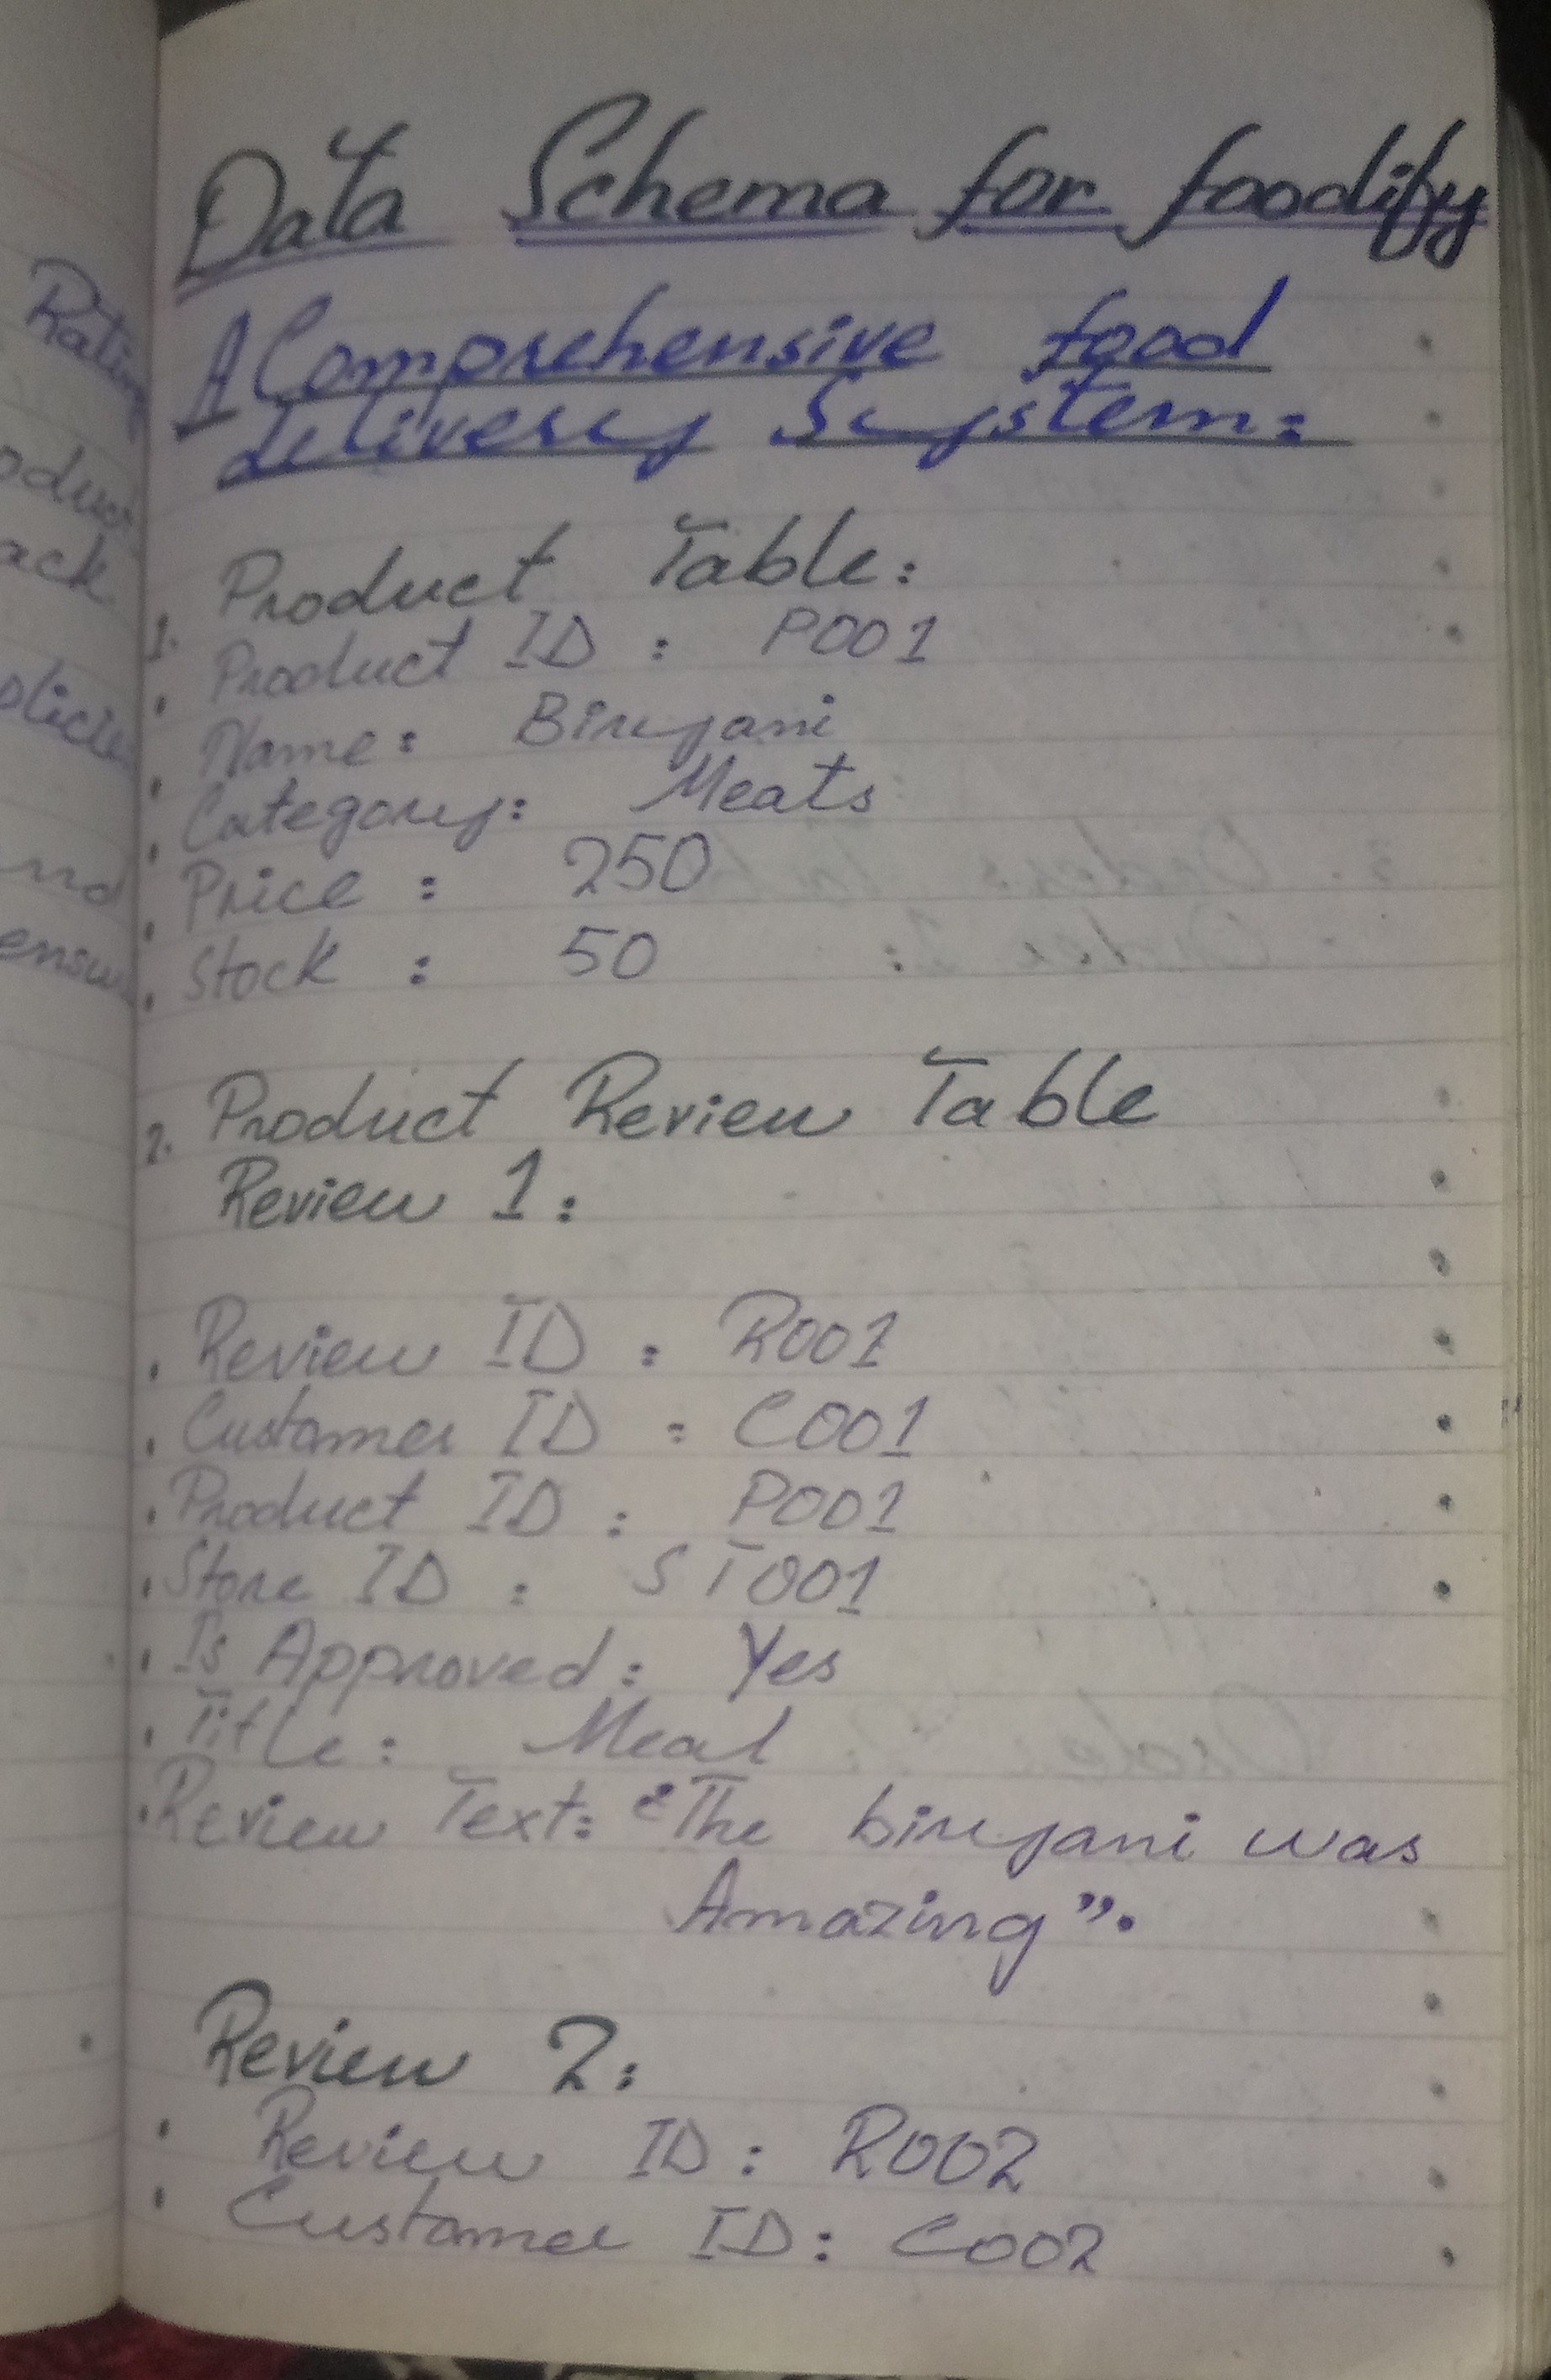 Data Schema for foodify
A Comprehensive food
delivery System:
1. Product Table:
. Product ID : P001
. Name: Biryani
. Category: Meats
. Price : 250
. Stock : 50
2. Product Review Table
Review 1:
. Review ID : R001
. Customer ID : C001
. Product ID : P001
. Store ID : ST001
. Is Approved: Yes
. Title: Meal
. Review Text: "The biryani was
Amazing".
Review 2:
. Review ID: R002
. Customer ID: C002